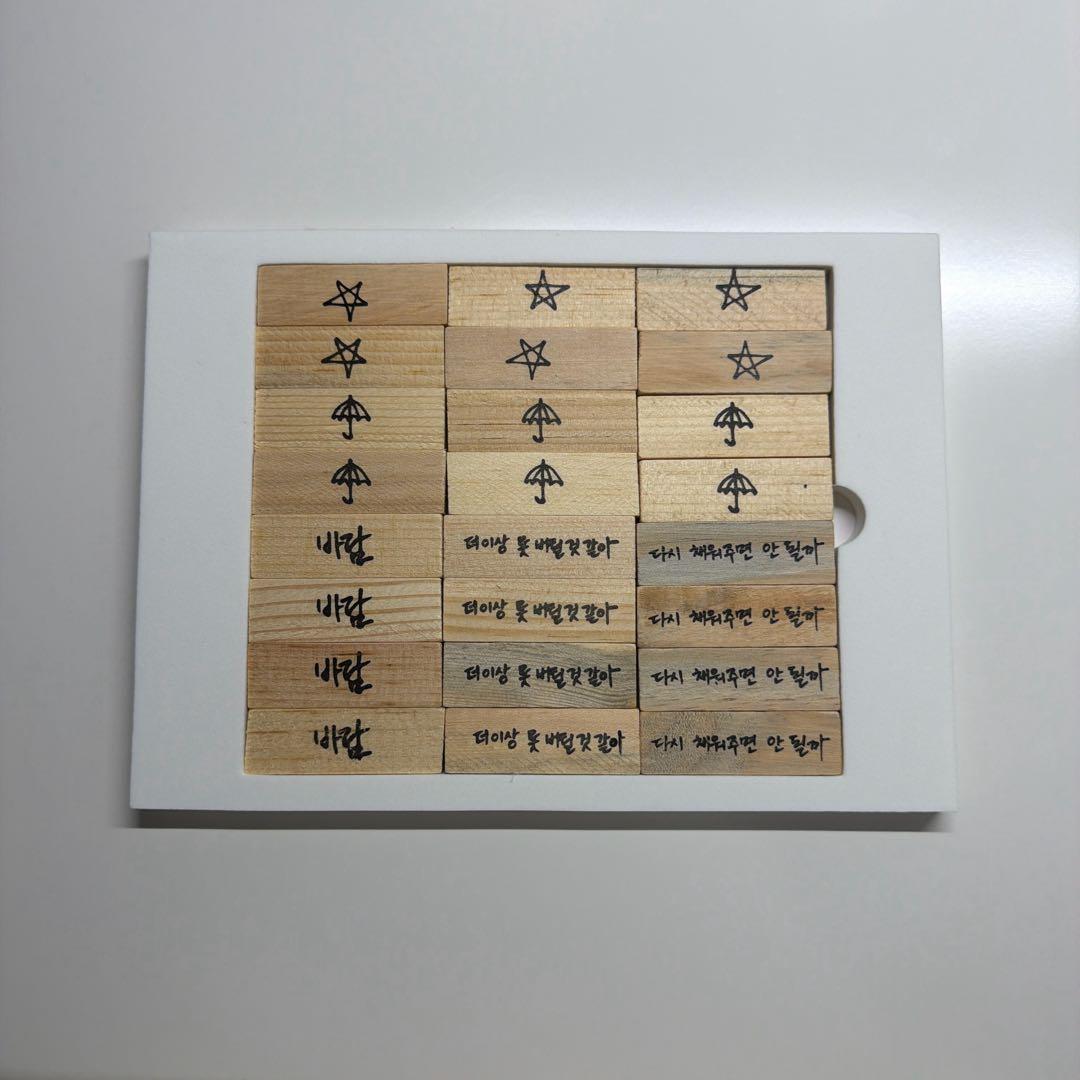 바람 더이상 못 버틸것 같아 다시 채워주면 안 될까
바람 더이상 못 버틸것 같아 다시 채워주면 안 될까
바람 더이상 못 버틸것 같아 다시 채워주면 안 될까
바람 더이상 못 버틸것 같아 다시 채워주면 안 될까